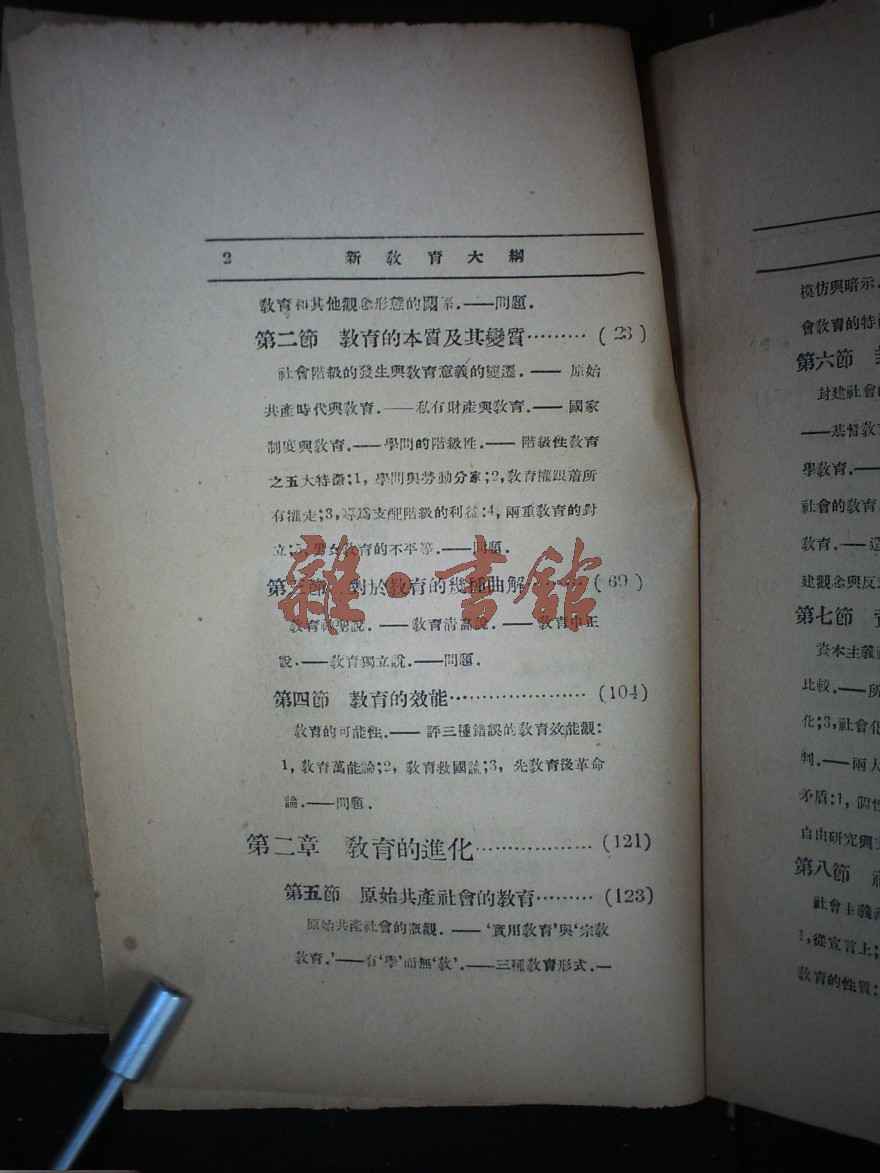 2 新教育大綱
教育和其他觀念形態的關系.——問題.
第二節 教育的本質及其變質………(23)
社會階級的發生與教育意義的變遷.——原始
共產時代與教育.——私有財產與教育.——國家
制度與教育.——學問的階級性.——階級性教育
之五大特徵;1,學問與勞動分家;2,教育權跟着所
有權走;3,專爲支配階級的利益;4,兩重教育的對
立;5,男女教育的不平等.——問題.
第三節 對於教育的幾種曲解………(69)
教育神聖說.——教育清高說.——教育中正
說.——教育獨立說.——問題.
第四節 教育的效能…………………(104)
教育的可能性.——評三種錯誤的教育效能觀:
1,教育萬能論;2,教育救國論;3,先教育後革命
論.——問題.
第二章 教育的進化………………(121)
第五節 原始共產社會的教育………(123)
原始共產社會的概觀.——‘實用教育’與‘宗教
教育.’——有‘學’而無‘教’.——三種教育形式.—
雜·書館
模仿與暗示.
會教育的特
第六節
封建社會的
——基督教
學教育.—
社會的教育
教育.——
建觀念與反
第七節
資本主義
比較.——所
化;3,社會化
判.——兩大
矛盾:1,
自由研究與
第八節
社會主義
1,從宣言上;
教育的性質: